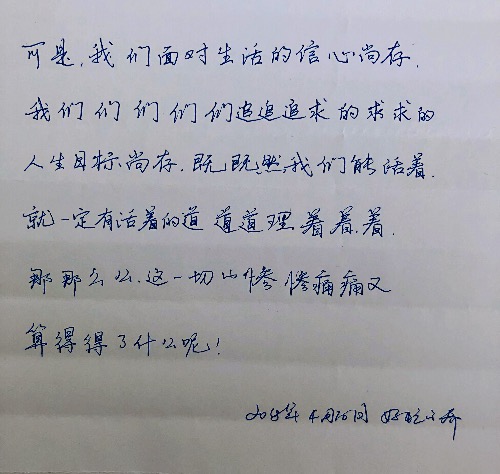 可是,我们面对生活的信心尚存.
我们们们们们追追追求的求求的
人生目标尚存.既既然,我们能活着.
就一定有活着的道道道理着着.着.
那那么么.这一切惨惨痛痛又
算得得了什么呢!
4月26日